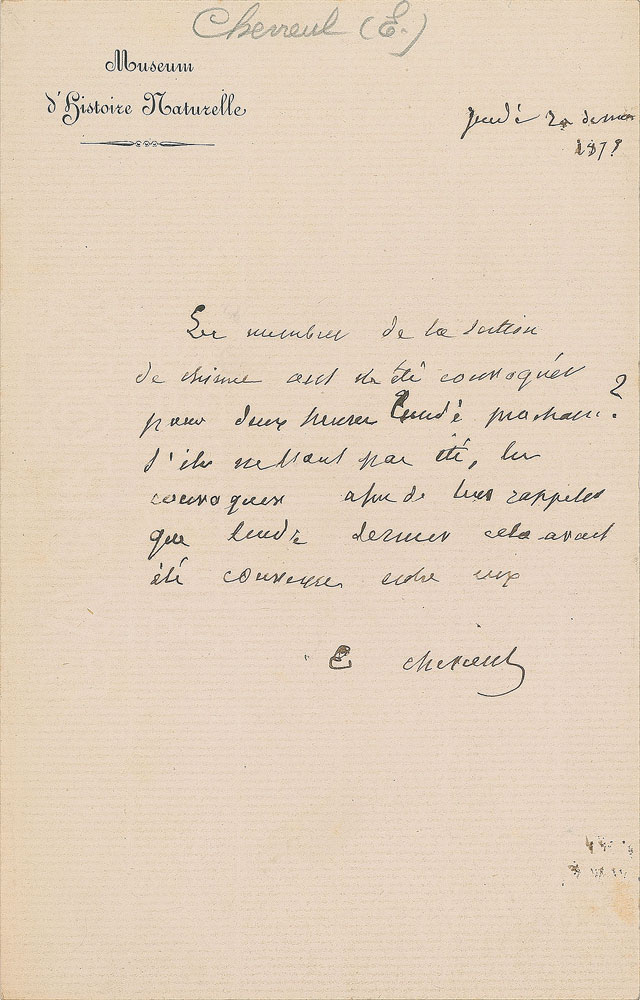 Chevreul (E.)
Museum
d'Histoire Naturelle
Jeudi 20 de mars
1879
Les membres de la section
de chimie ont ils été convoqués
pour deux heures lundi prochain?
S'ils ne l'ont pas été, les
convoquer afin de leur rappeler
que lundi dernier cela avait
été convenu entre eux
E Chevreul